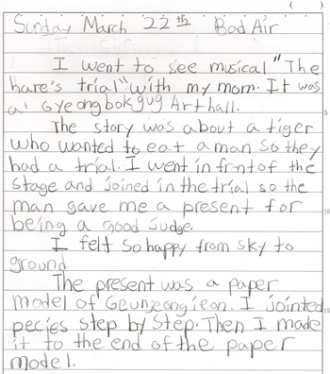 Sunday March 22th Bad Air
I went to see musical "The
hare's trial" with my mom. It was
a' Gyeongbokgug Art hall.
The story was about a tiger
who wanted to eat a man so they
had a trial. I went in frntof the
stage and joined in the trial so the
man gave me a present for
being a good judge.
I felt so happy from sky to
ground.
The present was a paper
model of Geunjeongjeon. I jointed
pecies step by step. Then I made
it to the end of the paper
model.